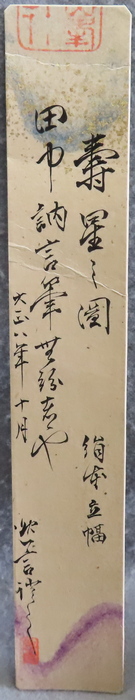 壽星之図
絹本立幅
田中訥言筆無紛者也
大正八年十月